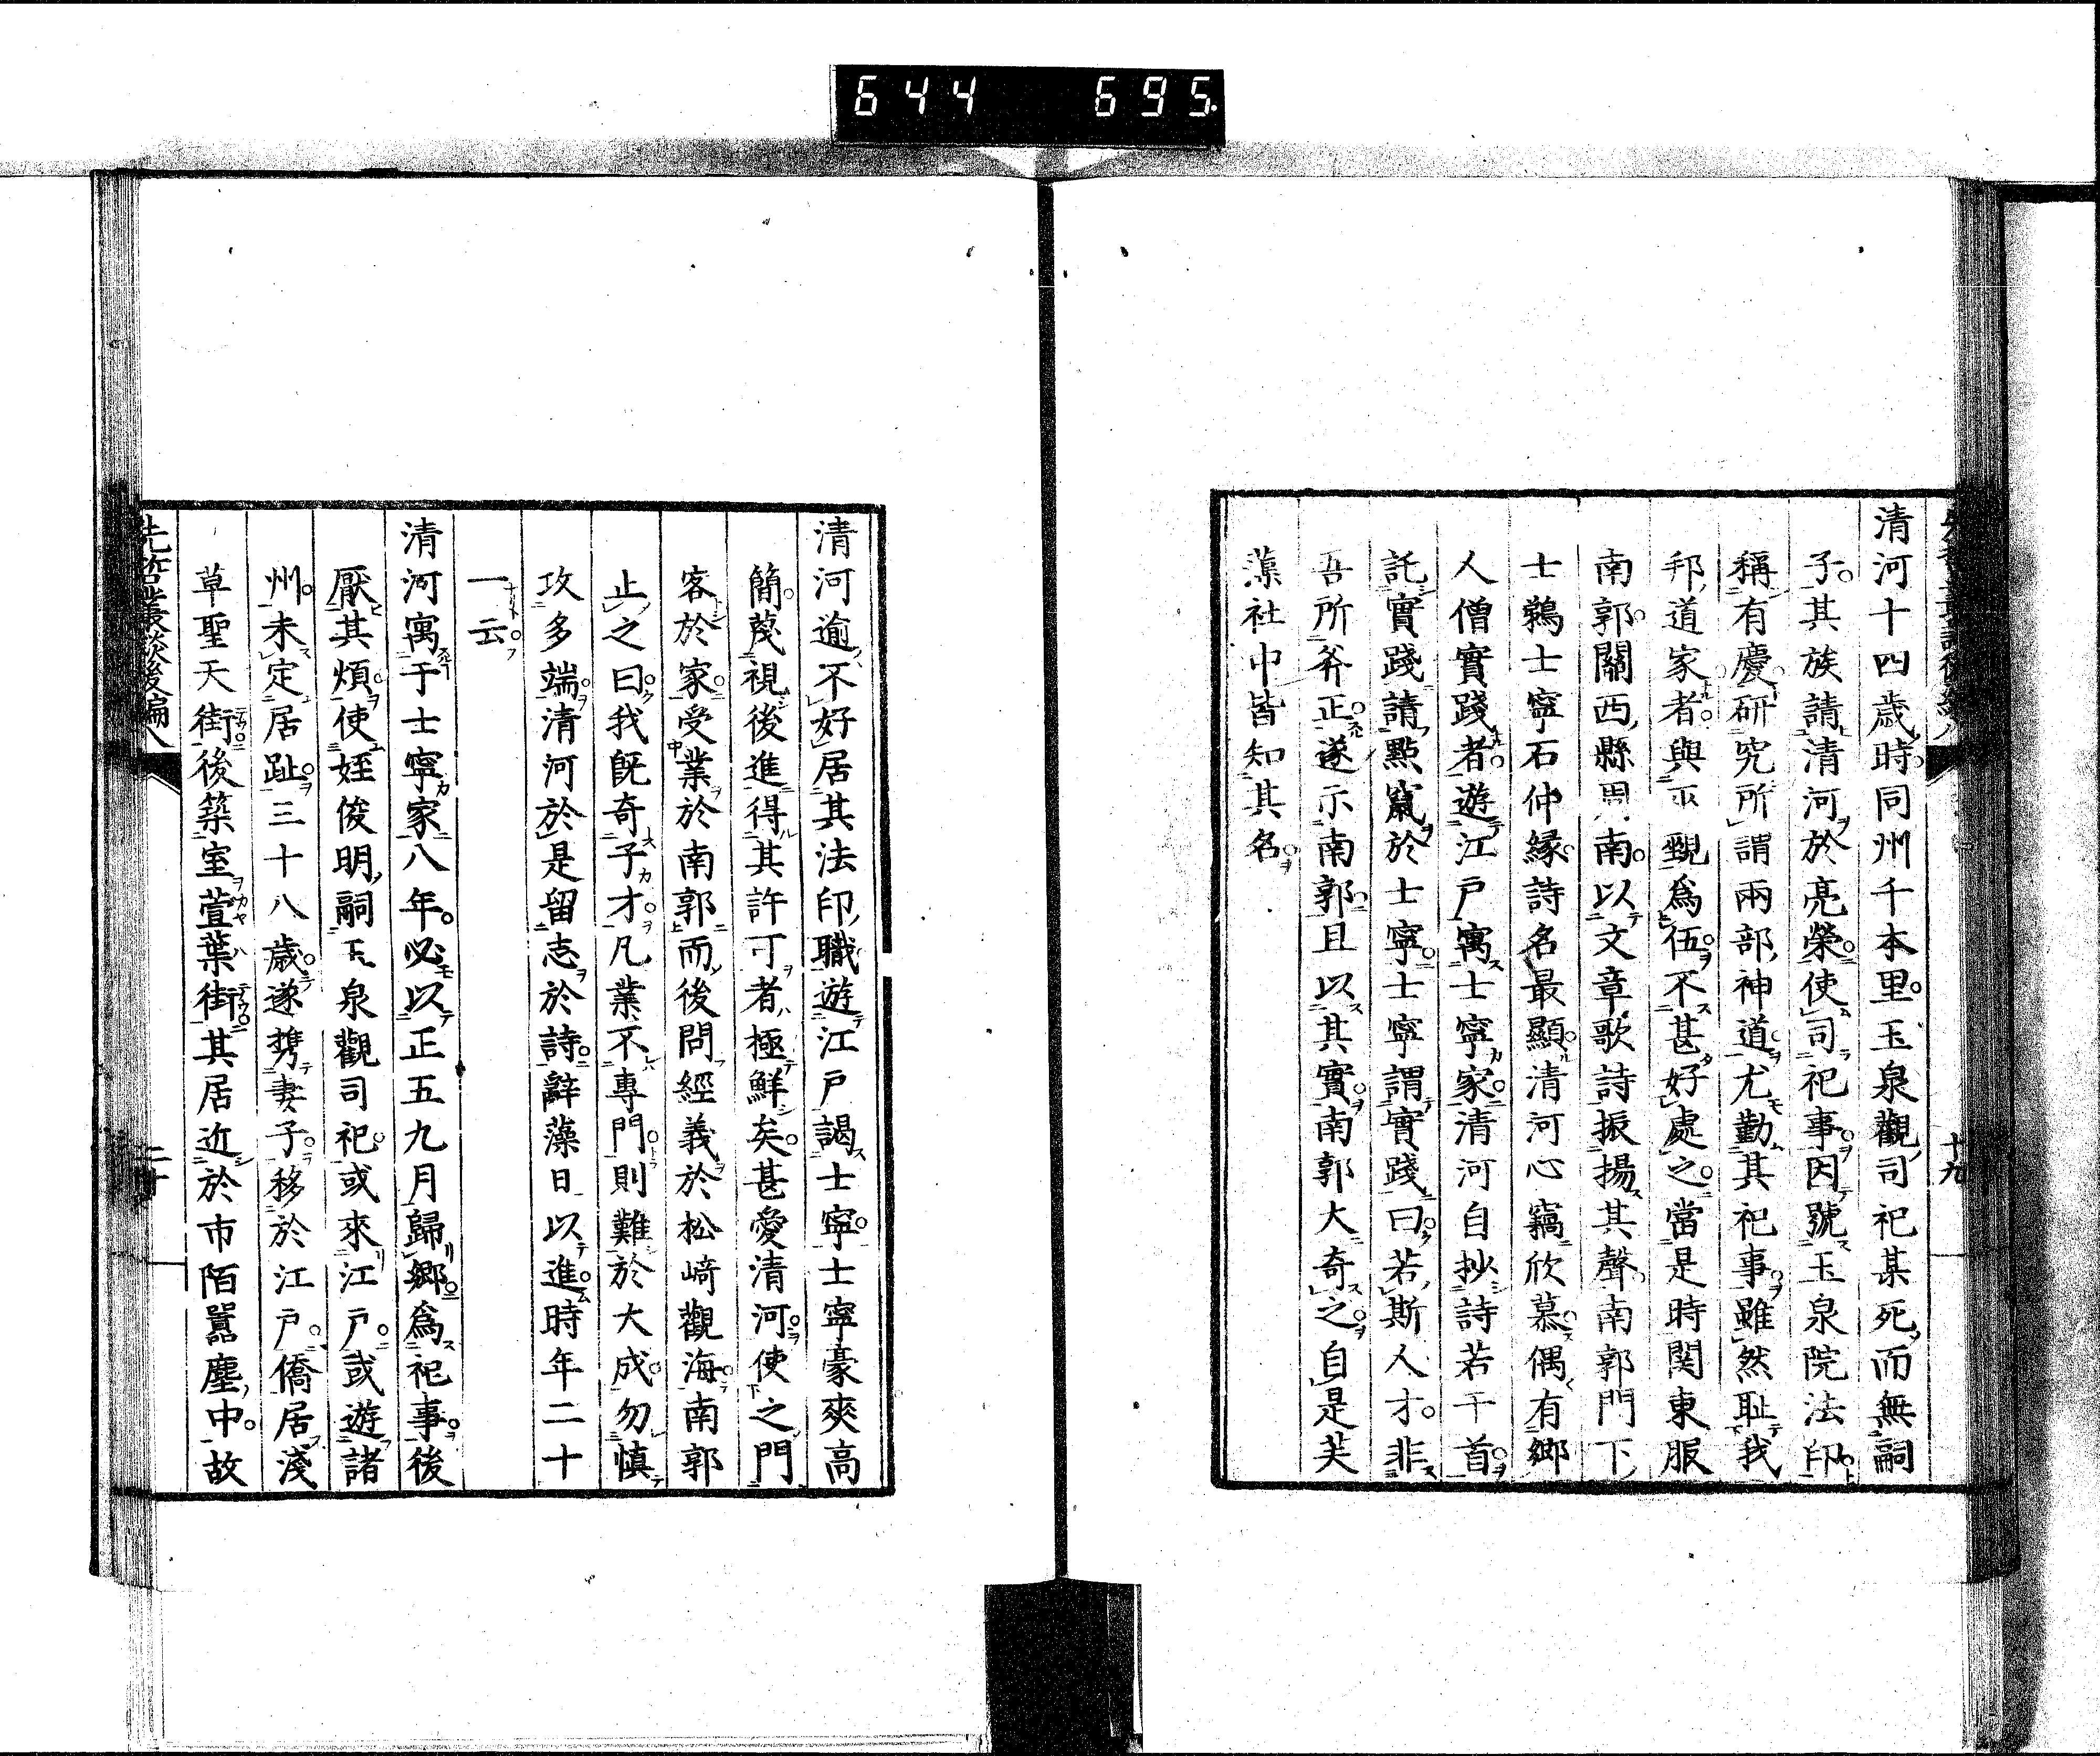 644 695
十九
清河十四歲時同州千本里玉泉觀司祀某死而無嗣
子其族請清河於亮榮使司祀事因號玉泉院法印
稱有慶研究所謂兩部神道尤勤其祀事雖然耻我
邦道家者與巫覡爲伍不甚好處之當是時関東服
南郭關西縣周南以文章歌詩振揚其聲南郭門下
士鵜士寧石仲緑詩名最顯清河心竊欣慕偶有鄉
人僧實踐者遊江戶寓士寧家清河自抄詩若干首
託實踐請點竄於士寧士寧謂實踐曰若斯人才非
吾所斧正遂示南郭且以其實南郭大奇之自是芙
蕖社中皆知其名
清河逾不好居其法印職遊江戶謁士寧士寧豪爽高
簡蔑視後進得其許可者極鮮矣甚愛清河使之門
客於家受業於南郭而後問經義於松﨑觀海南郭
止之曰我既奇子才凡業不專門則難於大成勿慎
攻多端清河於是留志於詩辭藻日以進時年二十
一云
清河寓于士寧家八年必以正五九月歸鄉爲祀事後
厭其煩使姪俊明嗣玉泉觀司祀或來江戶或遊諸
州未定居趾三十八歲遂携妻子移於江戶僑居淺
草聖天街後築室萱葉街其居近於市陌囂塵中故
先哲叢談後編八
二十